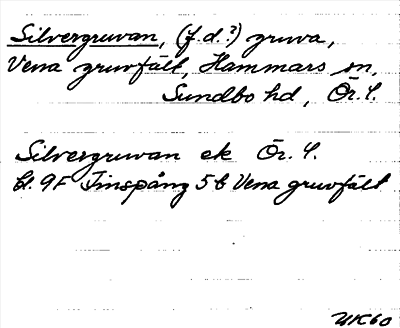 Silvergruvan, (f.d.?) gruva,
Vena gruvfält, Hammars sn,
Sundbo hd, Ör. l.
Silvergruvan ek Ör. l.
bl. 9F Finspång 5b Vena gruvfält
UK60